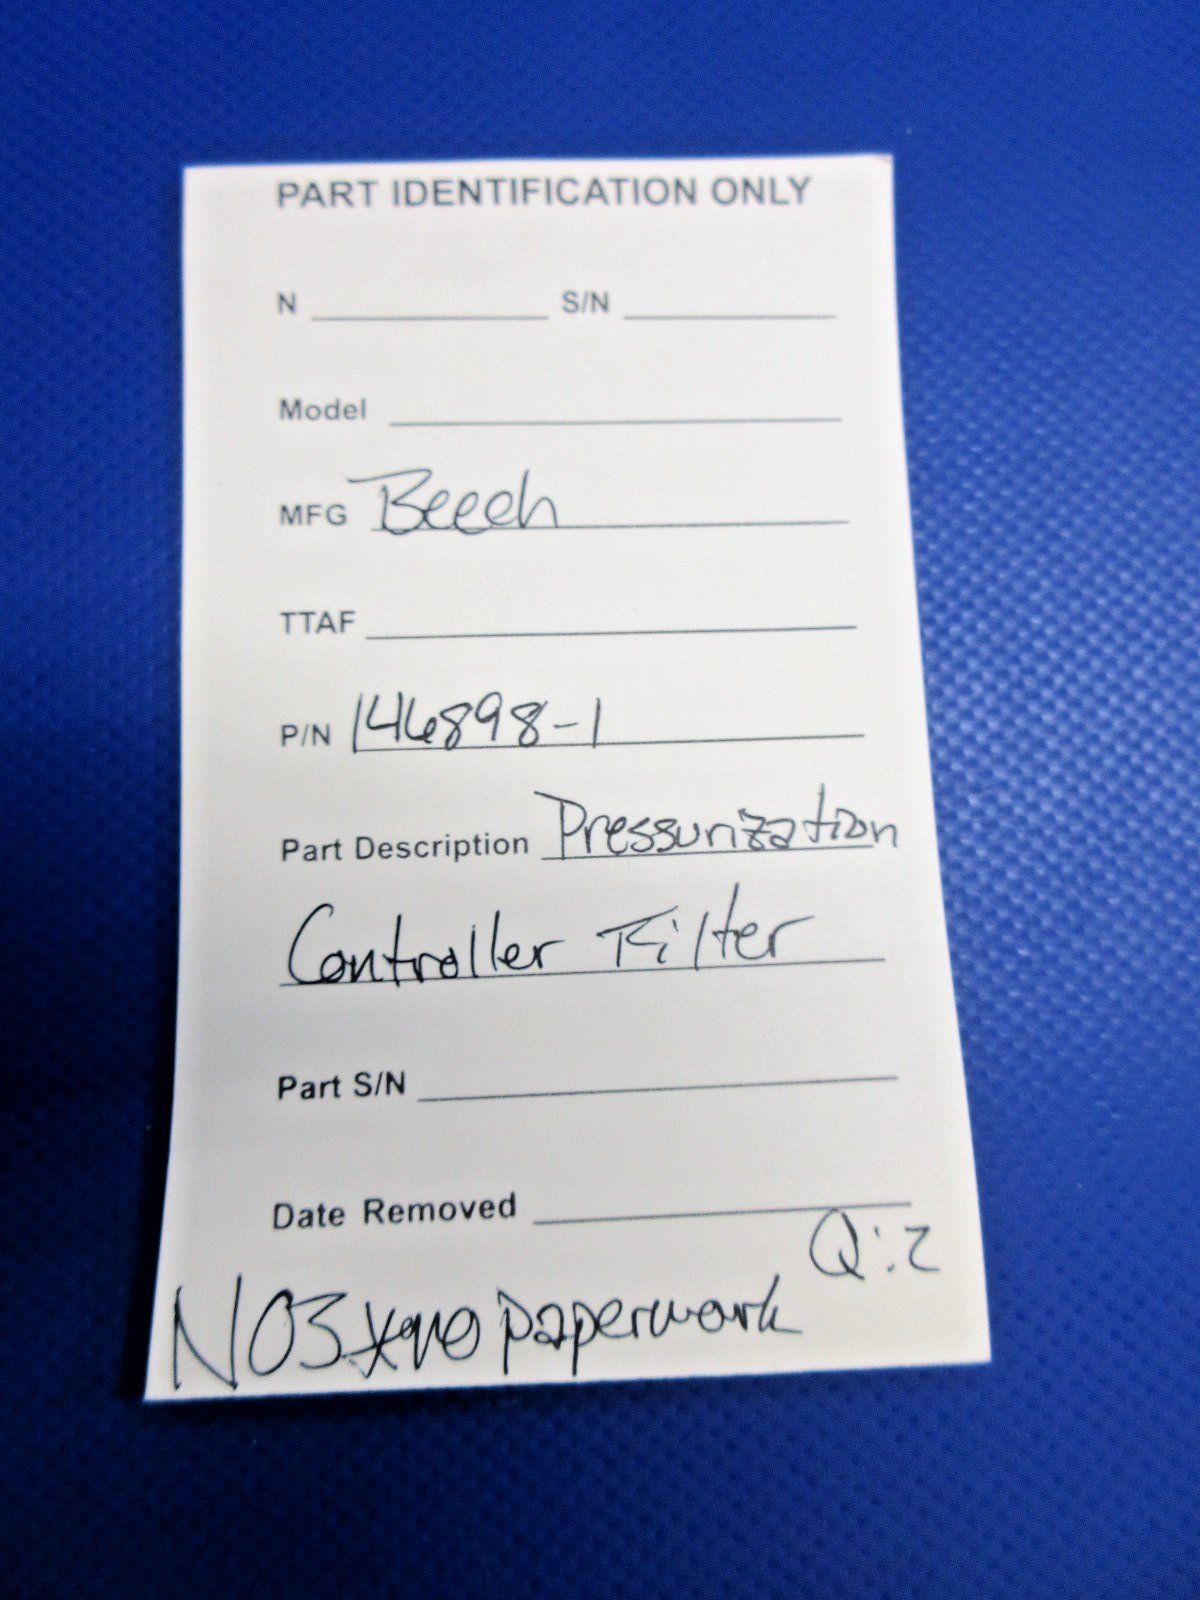 PART IDENTIFICATION ONLY
N S/N
Model
MFG Beech
TTAF
P/N 146898-1
Part Description Pressurization
Controller Filter
Part S/N
Date Removed
Q:2
NO3 *no paperwork